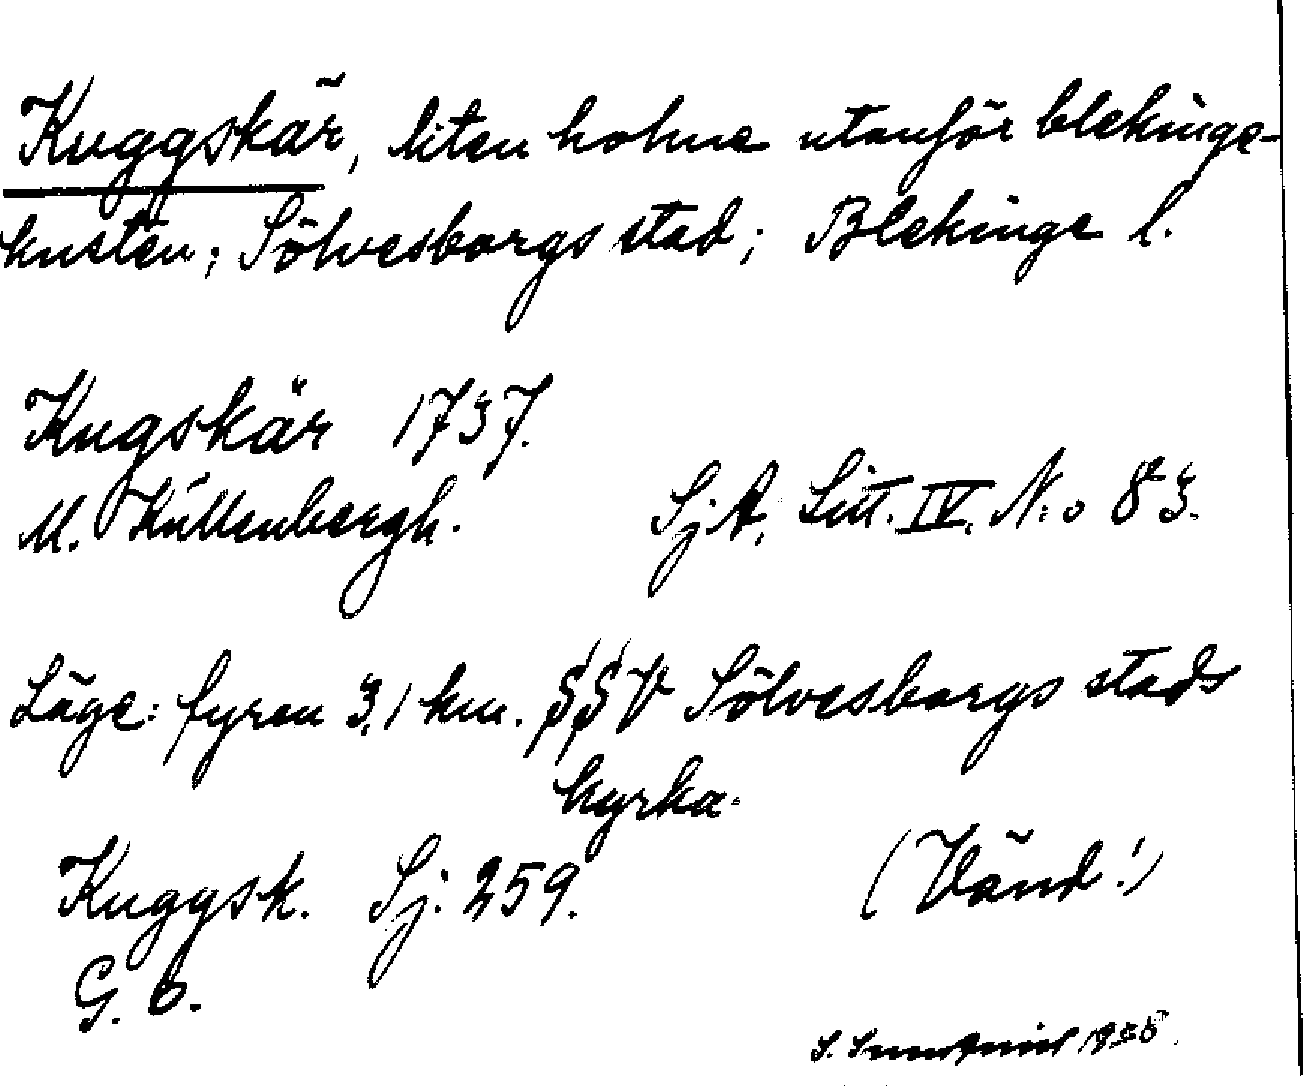 Kuggskär, liten holme utanför blekinge-
kusten; Sölvesborgs stad; Blekinge l.
Kugskär 1737.
M. Küllenbergh. SjA. Litt. IV. N:o 83.
Läge: fyren 3,1 km. SSV Sölvesborgs stads
kyrka.
Kuggsk. Sj. 259. (Vänd!)
G. 6.
S.